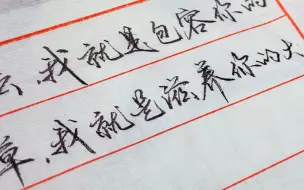 我就是包容你的
章,我就是滋养你的大